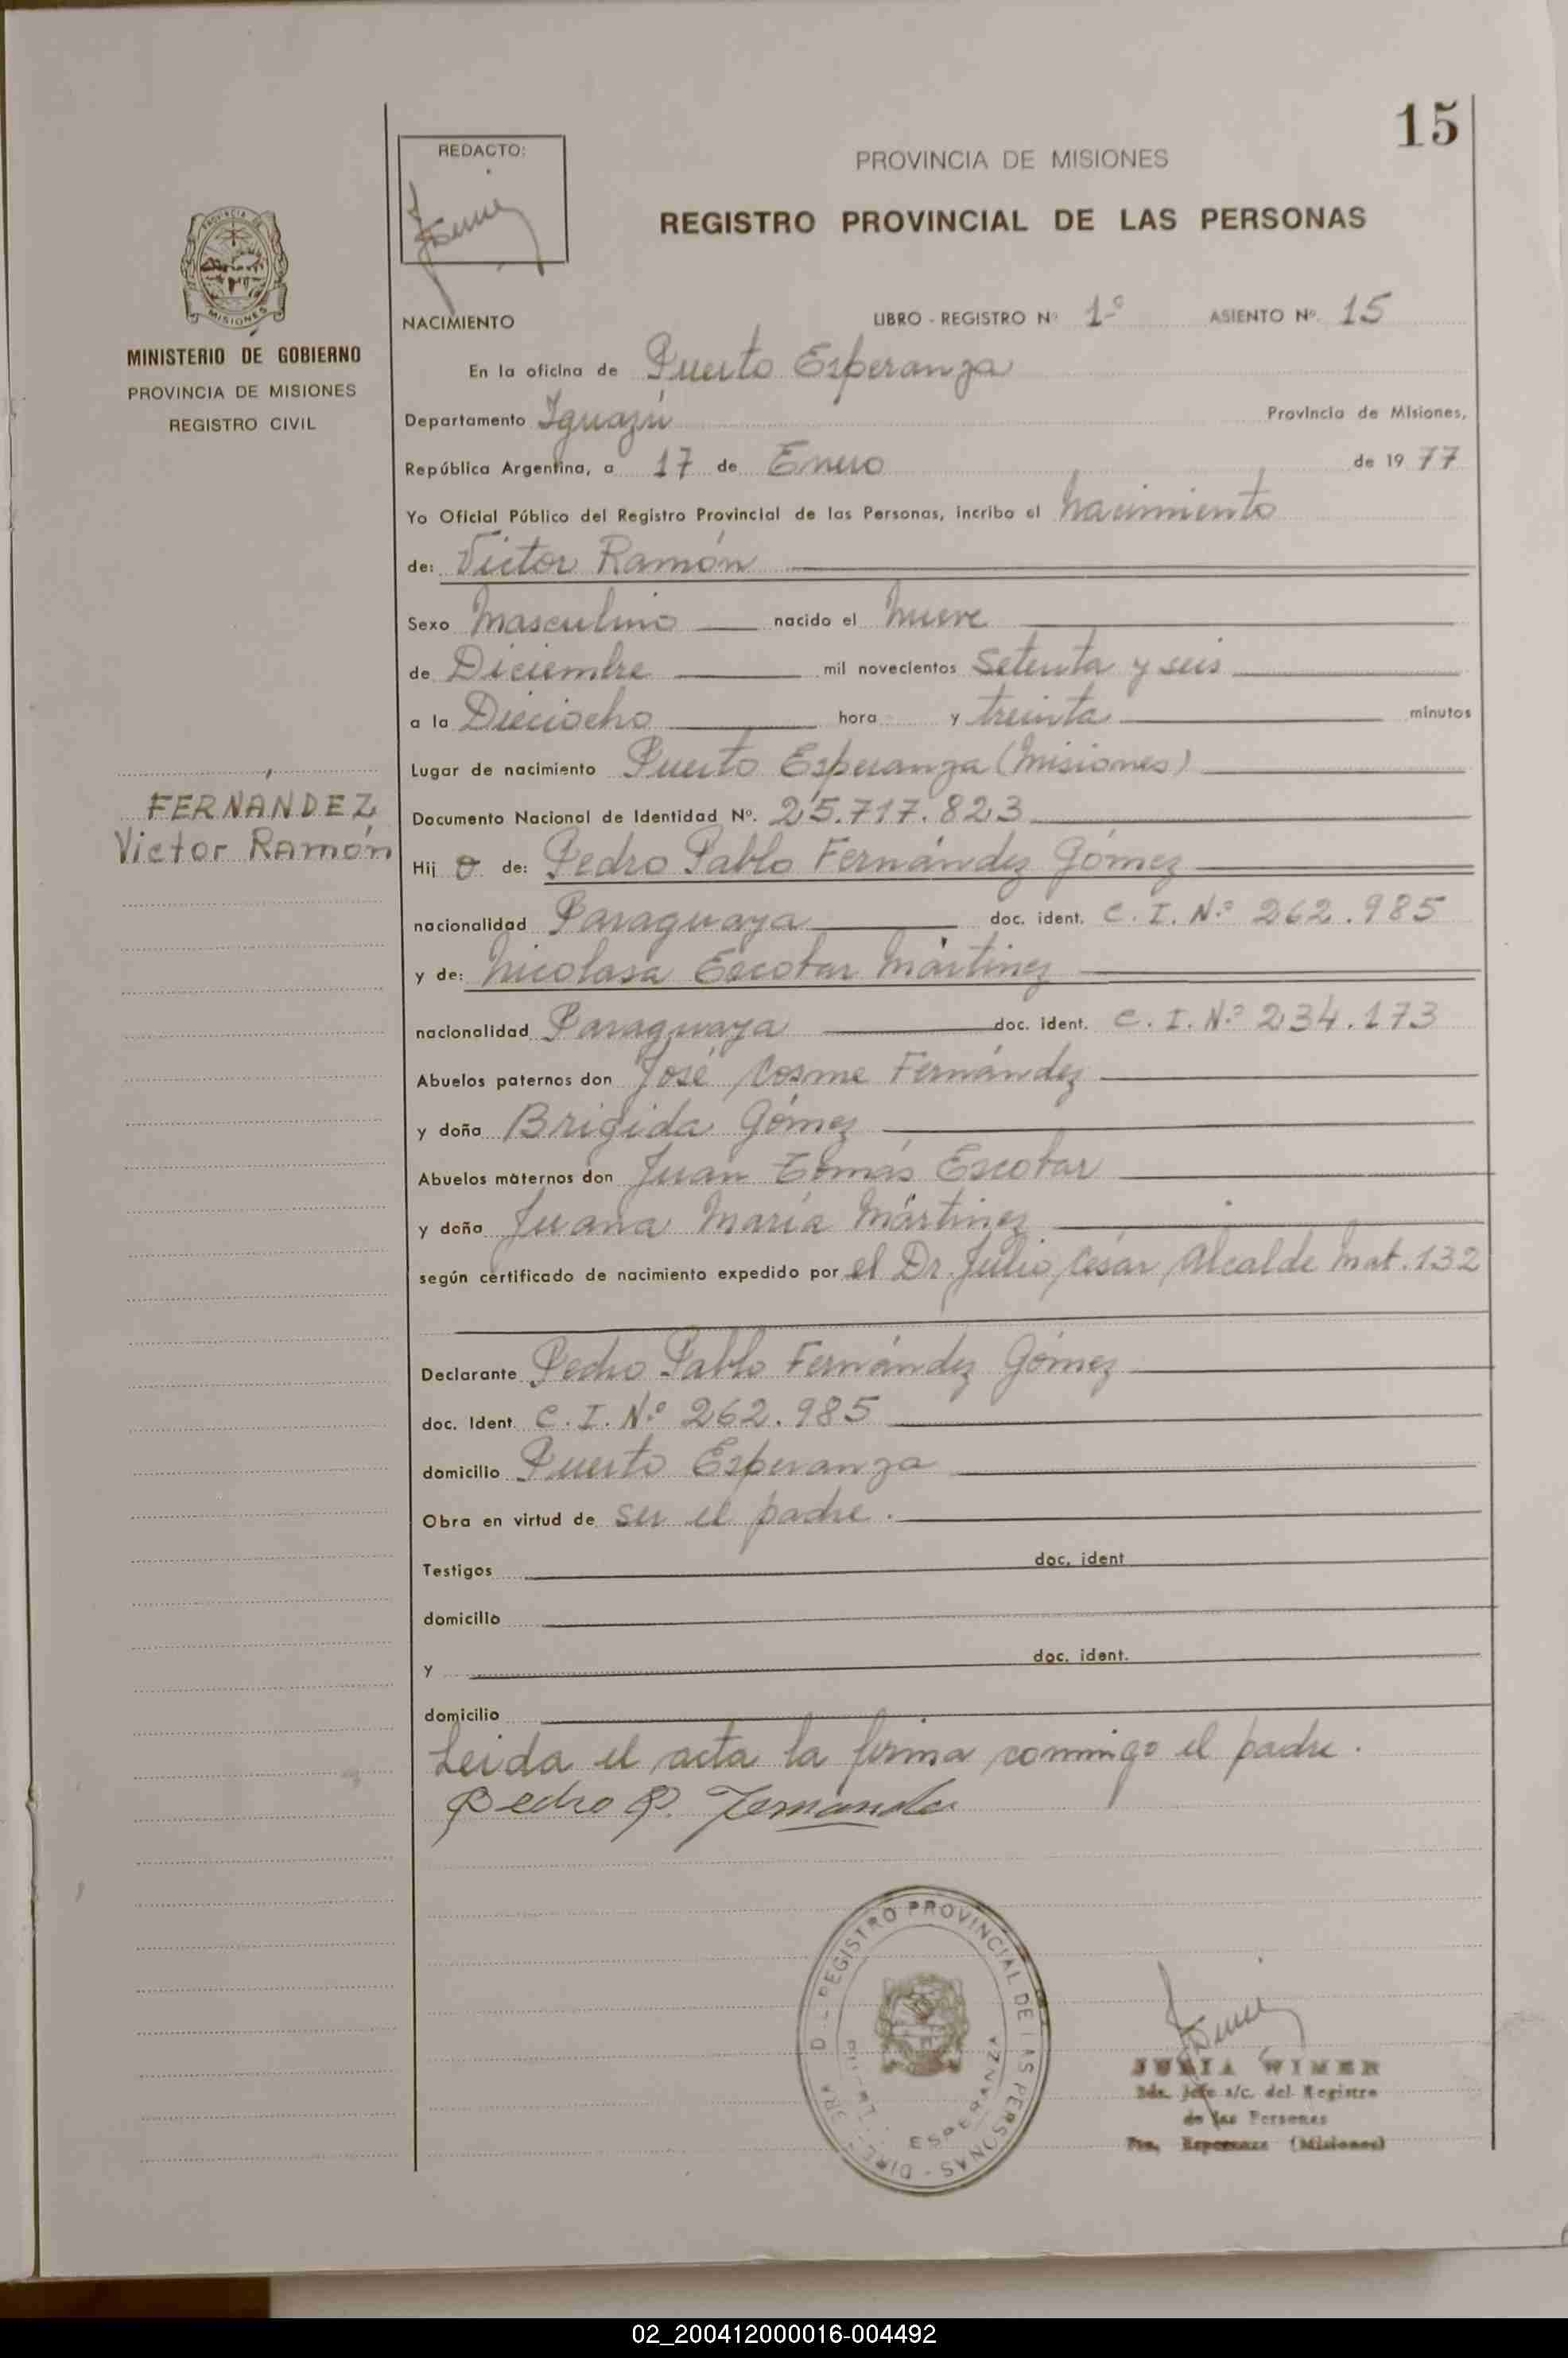 15
REDACTO:
PROVINCIA DE MISIONES
REGISTRO PROVINCIAL DE LAS PERSONAS
PROVINCIA DE
MISIONES
MINISTERIO DE GOBIERNO
PROVINCIA DE MISIONES
REGISTRO CIVIL
NACIMIENTO LIBRO - REGISTRO Nº 1º ASIENTO Nº. 15
En la oficina de Puerto Esperanza
Departamento Iguazú Provincia de Misiones,
República Argentina, a 17 de Enero de 19 77
Yo Oficial Público del Registro Provincial de las Personas, incribo el nacimiento
de: Victor Ramón
Sexo Masculino nacido el nueve
de Diciembre mil novecientos Setenta y seis
a la Dieciocho hora y treinta minutos
Lugar de nacimiento Puerto Esperanza (Misiones)
FERNÁNDEZ
Victor Ramón
Documento Nacional de Identidad Nº. 25.717.823
Hij o de: Pedro Pablo Fernández Gómez
nacionalidad Paraguaya doc. ident. C. I. Nº 262.985
y de: Nicolasa Escobar Mártinez
nacionalidad Paraguaya doc. ident. C. I. Nº 234.173
Abuelos paternos don José Cosme Fernández
y doña Brigida Gómez
Abuelos maternos don Juan Tomás Escobar
y doña Juana María Mártinez
según certificado de nacimiento expedido por el Dr. Julio César Alcalde Mat. 132
Declarante Pedro Pablo Fernández Gómez
doc. Ident C. I. Nº 262.985
domicilio Puerto Esperanza
Obra en virtud de ser el padre.
Testigos doc. ident
domicilio
y doc. ident.
domicilio
Leida el acta la firma conmigo el padre.
Pedro P. Fernandez
REGISTRO PROVINCIAL DE LAS PERSONAS
ESPERANZA
JULIA WIMER
Jefe a/c. del Registro
de las Personas
Pto. Esperanza (Misiones)
02_200412000016-004492